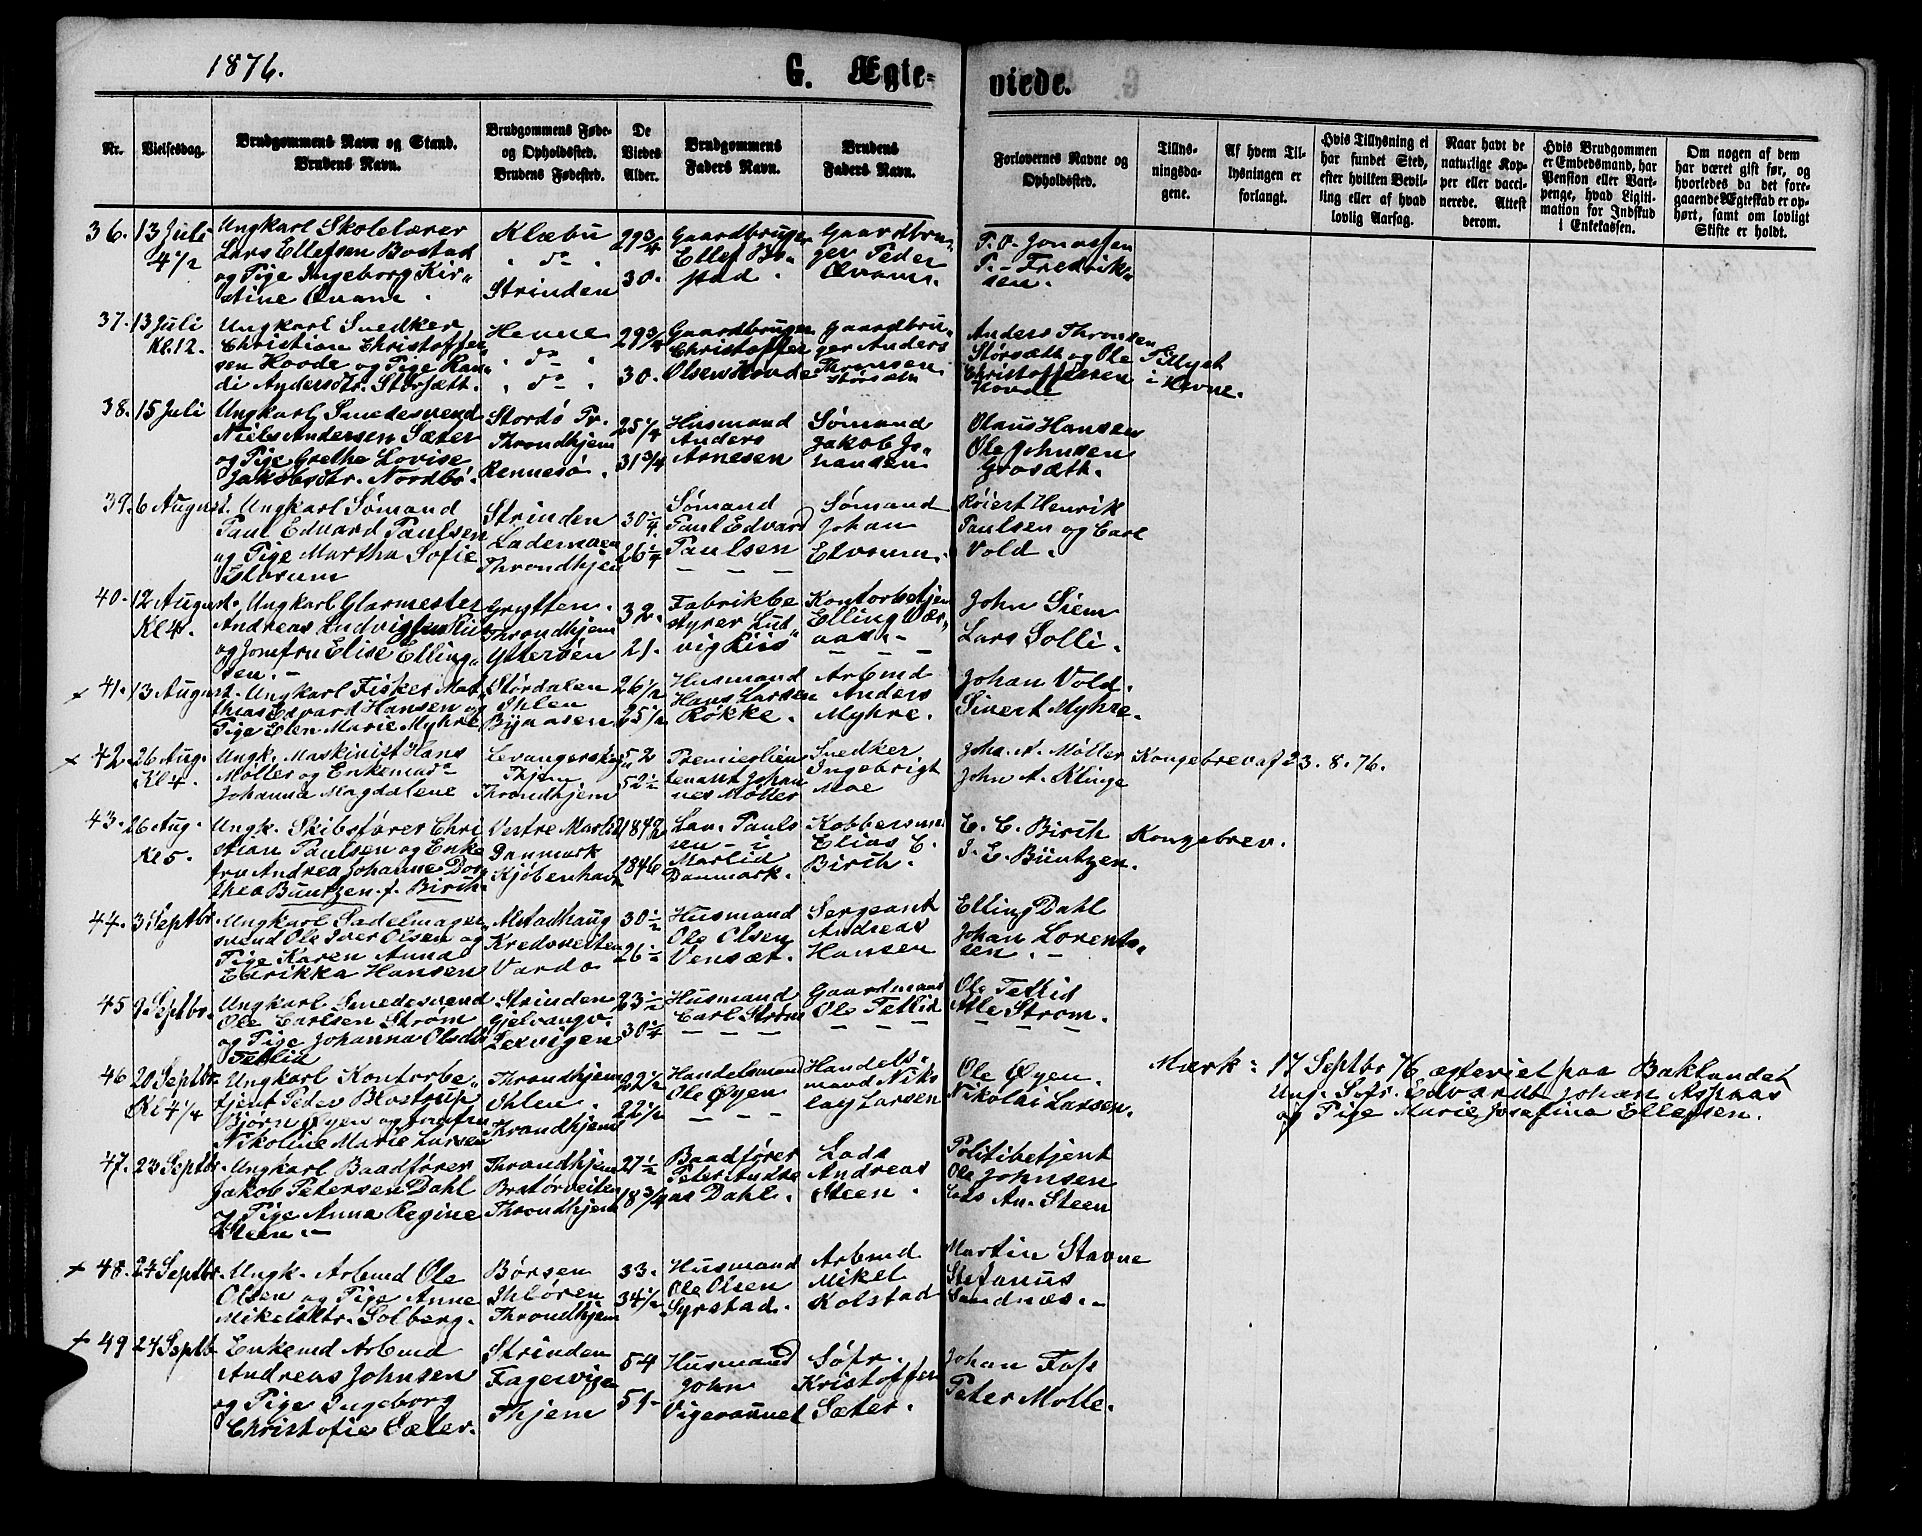 1876.
G. Ægte-
viede.
Nr.
Vielsesdag.
Brudgommens Navn og Stand.
Brudens Navn.
Brudgommens Føde-
og Opholdssted.
Brudens Fødested.
De
Viedes
Alder.
Brudgommens
Faders Navn.
Brudens
Faders Navn.
Forlovernes Navne og
Opholdssted.
Tillys-
ningsda-
gene.
Af hvem Til-
lysningen er
forlangt.
Hvis Tillysning ei
har fundet Sted,
efter hvilken Bevil-
ling eller af hvad
lovlig Aarsag.
Naar havt de
naturlige Kop-
per eller vacci-
nerede. Attest
derom.
Hvis Brudgommen
er Embedsmand, har
Pension eller Vart-
penge, hvad Ligiti-
mation for Indskud
i Enkekassen.
Om nogen af dem
har været gift før, og
hvorledes da det fore-
gaaende Ægteskab er op-
hørt, samt om lovligt
Skifte er holdt.
36.
13 Juli
4 1/2
Ungkarl Skolelærer
Lars Ellefsen Bostad
og Pige Ingeborg Kir-
stine Qvam.
Klæbu
" do "
Strinden
29 3/4
30.
Gaardbruger
Ellef Bo-
stad
Gaardbru-
ger Peder
Qvam.
P. O. Jonassen
P. - Fredrik-
sen.
37.
13 Juli
Kl. 12.
Ungkarl Snedker
Christian Christoffer-
sen Hovde og Pige Ran-
di Andersdtr. Storsæth.
Hevne
" do "
" do "
29 3/4
30.
Gaardbruger
Christoffer
Olsen Hovde
Gaardbru-
ger Anders
Thronsen
Størsæth
Anders Thronsen
Størsæth og Ole
Christoffersen
Hovde
Tillyst
i Hevne.
38.
15 Juli
Ungkarl Smedesvend
Niels Andersen Sæter
og Pige Grethe Lovise
Jakobsdtr. Nordbø.
Stordø Pr.
Throndhjem
Rennesø.
25 1/4
31 3/4
Husmand
Anders
Arnesen
Sømand
Jakob Jo-
hansen
Olaus Hansen
Ole Johnsen
Grosæth.
39.
6 August.
Ungkarl Sømand
Paul Edvard Paulsen
og Pige Martha Sofie
Elvrum
Strinden
Lademoen
Throndhjem
30 1/4
26 1/4
Sømand
Paul Edvard
Paulsen
Sømand
Johan
Elvrum.
Henrik
Paulsen og Carl
Vold.
40.
12 August.
Kl 4.
Ungkarl Glarmester
Andreas Ludvigsen Riis
og Jomfru Elise Elling-
sen.
Grytten.
Throndhjem
Ytterøen
32.
21.
Fabrikbe
styrer Lud-
vig Riis
Kontorbetjen
Elling Vær-
aas.
John Siem
Lars Solli.
41.
13 August.
Ungkarl Fisker Mat-
thias Edvard Hansen og
Pige Elen Marie Myhre
Størdalen
Ihlen
Bynæsen
26 1/2
25 1/2
Husmand
Hans Larsen
Røkke.
Arbmd
Anders
Myhre.
Johan Vold.
Sivert Myhre.
42.
26 Aug.
Kl 4.
Ungk. Maskinist Hans
Møller og Enkemad
Johanna Magdalene
Levangerskog
Thjem
Throndhjem
52
52 1/2
Premierlieu
tenant Johan
nes Møller
Snedker
Ingebrigt
Moe
Joh. N. Møller
John A. Klinge
Kongebrev af 23. 8. 76.
43.
26 Aug.
Kl 5.
Ungk. Skibsfører Chri
stian Paulsen og Enke
fru Andrea Johanne Dor
thea Büntzen f. Birch.
Vestre Marlid
Danmark
Kjøbenhavn
1842
1846
Lau. Pauls
sen - i
Marlid
Danmark.
Kobbersm.
Elias E.
Birch.
E. C. Birch
J. E. Büntzen.
Kongebrev.
44.
3 Septbr.
Ungkarl Sadelmager-
svend Ole Iver Olsen og
Pige Karen Anna
Enrikka Hansen
Alstadhaug
Kredsveiten
Vardø
30 1/2
26 1/2
Husmand
Ole Olsen
Vensæt.
Sergeant
Andreas
Hansen
Elling Dahl
Johan Lorent-
sen.
45
9 Septbr.
Ungkarl Smedesvend
Ole Carlsen Strøm
og Pige Johanna Olsdtr
Tetlid
Strinden
Gjelvangv.
Lexvigen
23 1/2
30 1/4
Husmand
Carl Strøm
Gaardmand
Ole Tetlid
Ole Tetlid
Atle Strøm.
46
20 Septbr.
Kl 4 1/4
Ungkarl Kontorbe-
tjent Peder Blostrup
Bjørn Øyen og Jomfru
Nikoline Marie Larsen
Throndhjem
Ihlen.
Throndhjem
22 1/2
22 1/2
Handelsmand
Ole Øyen
Handels-
mand Niko
lay Larsen
Ole Øyen.
Nikolai Larsen.
Mærk: 17 Septbr 76 ægteviet paa Baklandet
Ung. Søfr. Edvardt Johan Aspaas
og Pige Marie Josefine Ellefsen.
47.
23 Septbr.
Ungkarl Baadfører
Jakob Petersen Dahl
og Pige Anna Regine
Steen.
Throndhjem
Bratørveiten
Throndhjem
27 1/2
18 3/4
Baadfører
Peter Andre
as Dahl.
Lods
Andreas
Steen.
Politibetjent
Ole Johnsen
Lods An. Steen
48.
24 Septbr.
Ungk. Arbmd Ole
Olsen og Pige Anne
Mikelsdtr. Solberg.
Børsen
Ihløren
Throndhjem
33.
34 1/2
Husmand
Ole Olsen
Syrstad.
Arbmd
Mikel
Kolstad
Martin Stavne
Stefanus
Sandnæs.
49
24 Septb
Enkemd Arbmd
Andreas Johnsen
og Pige Ingeborg
Christofie Sæter.
Strinden
Fagervigen
Thjem
54
51
Husmand
John
Vigevannet
Søfr.
Kristoffer
Sæter.
Johan Foss
Peter Molle.